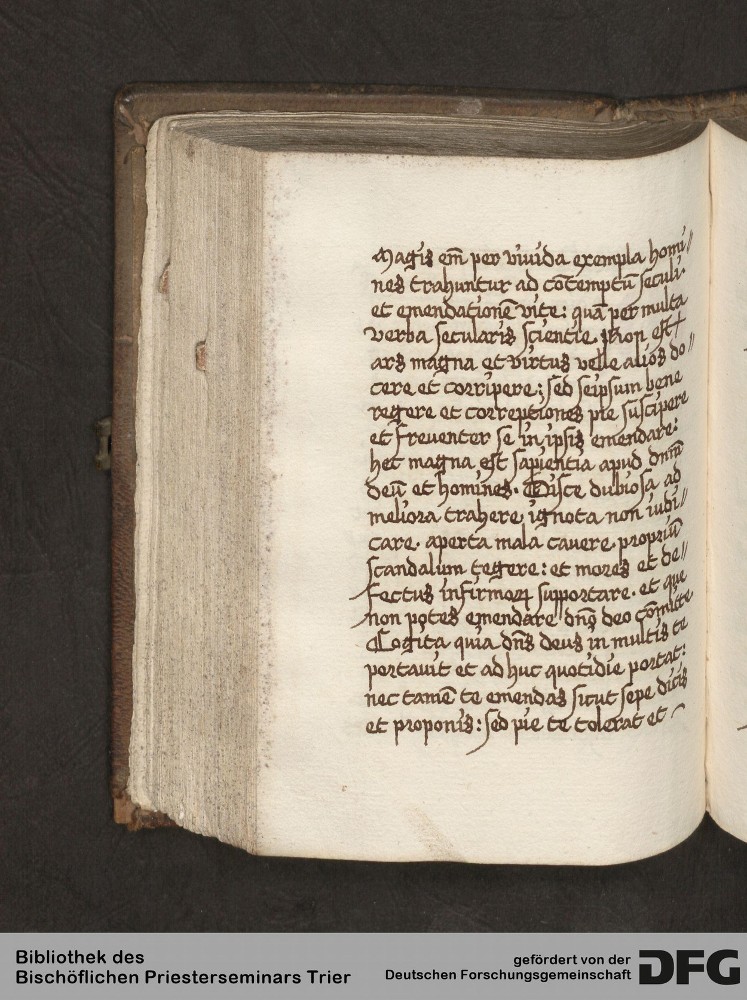 Magis em̄ per viuida exempla homi//
nes trahuntur ad cōtemptū seculi.
et emendationē vite: quā per multa
verba secularis scientie. Non est
ars magna et virtus velle alios do//
cere et corripere; sed seipsum bene
regere et correptiones pie suscipere
et frequenter se in ipsis emendare:
hec magna est sapientia apud dnm̄
deū et homines. Disce dubiosa ad
meliora trahere ignota non iudi//
care. aperta mala cauere. propriū
scandalum tegere: et mores et de//
fectus infirmoꝝ supportare. et que
non potes emendare dnō deo cōmitte
Cogita quia dn̄s deus in multis te
portauit et ad huc quotidie portat:
nec tamē te emendas sicut sepe dicis
et proponis: sed pie te tolerat et
Bibliothek des
Bischöflichen Priesterseminars Trier
gefördert von der
Deutschen Forschungsgemeinschaft
DFG